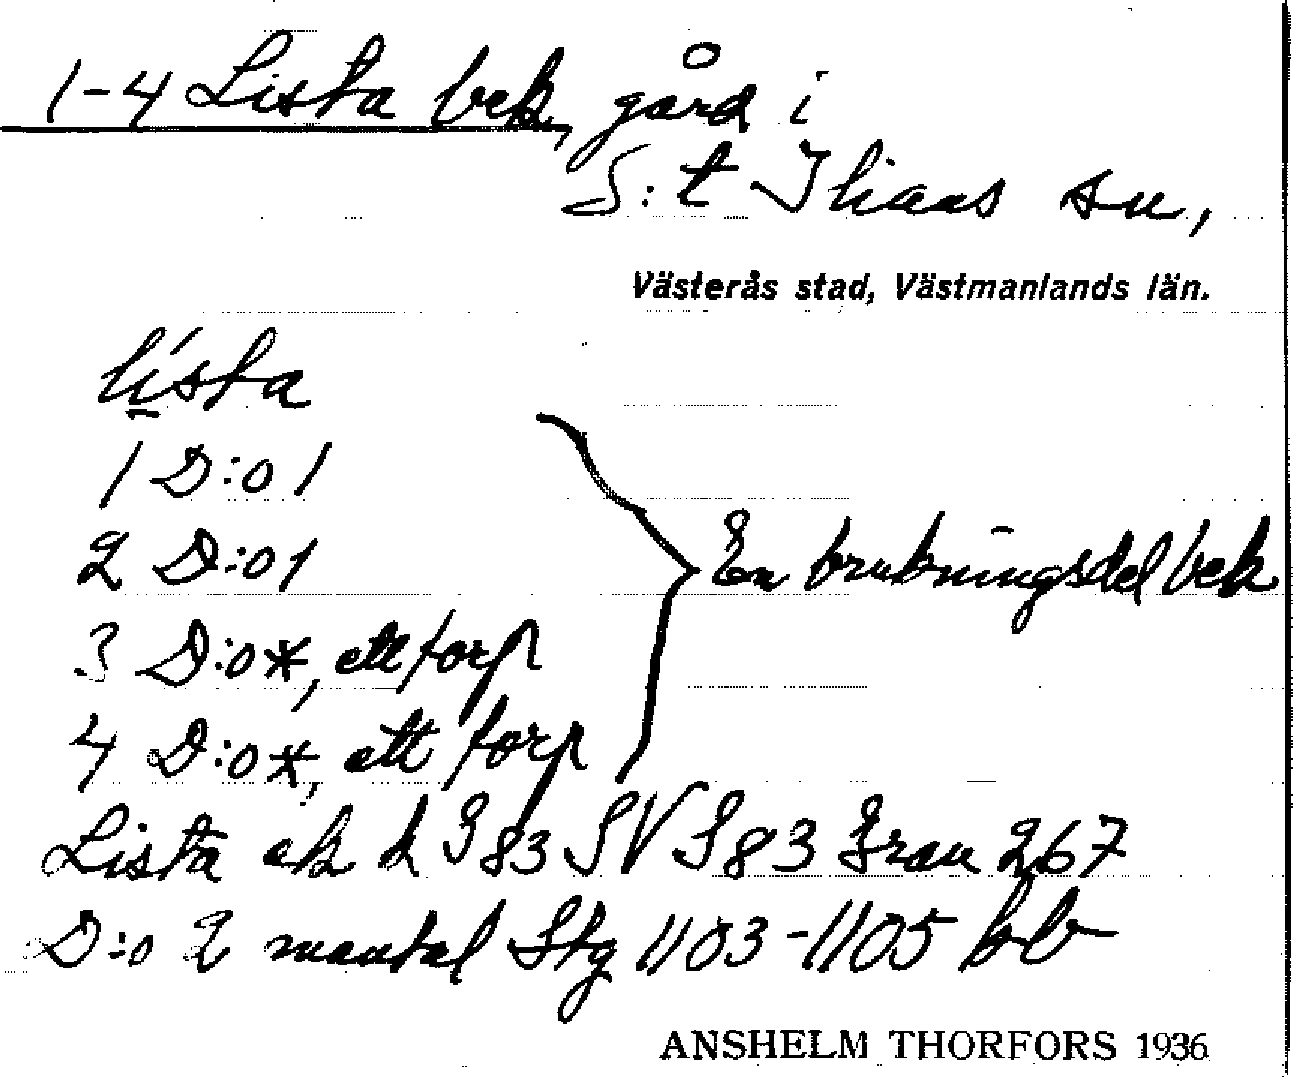 1-4 Lista bek, gård i
S:t Ilians sn,
Västerås stad, Västmanlands län.
lísta
1 D:o 1
2 D:o 1
3 D:o*, ett torp
4 D:o*, ett torp
En brukningsdel bek
Lista ek d I 83 SV S 83 Gran 267
D:o 2 mantal Stg 1103-1105 bb
ANSHELM THORFORS 1936